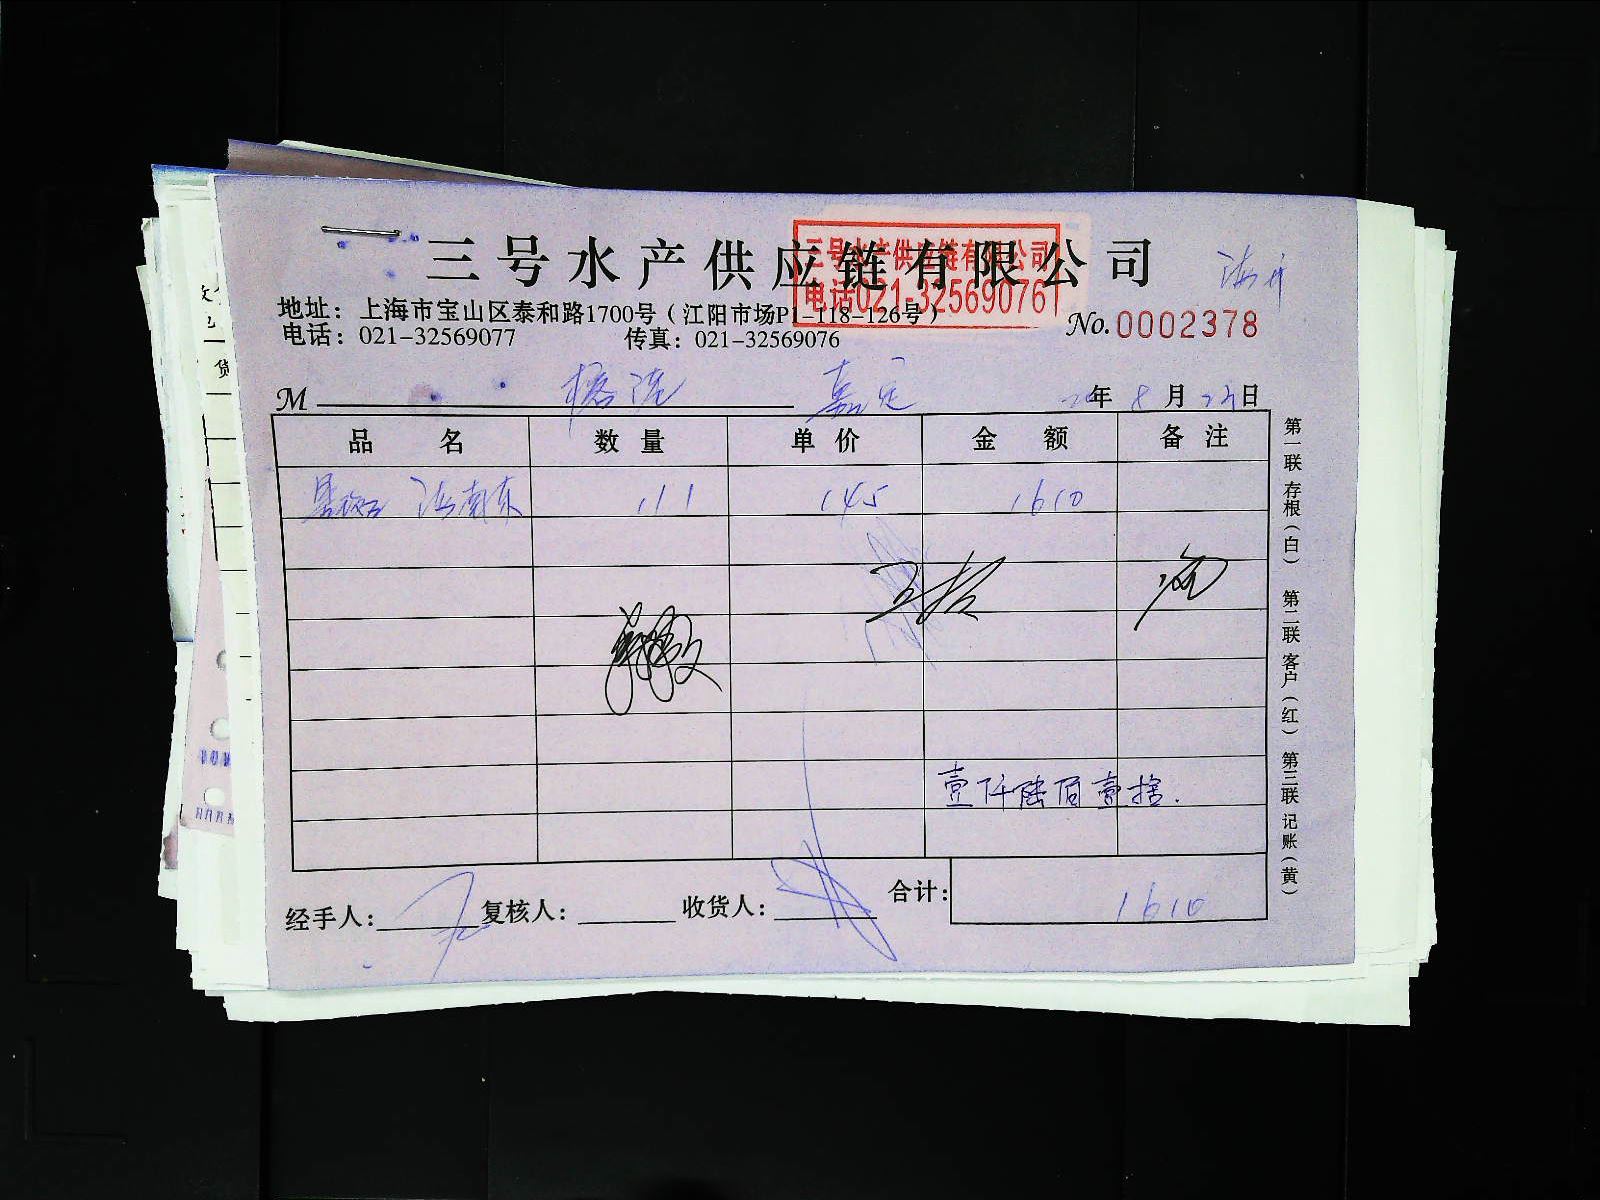 三号水产供应链有限公司
三号水产供应链有限公司
电话021-32569076
地址：上海市宝山区泰和路1700号（江阳市场P1-118-126号）
电话：021-32569077 传真：021-32569076
No.0002378
M 嘉定 年 8 月 日
品名 数量 单价 金额 备注
海南东 111 145 1610
壹仟陆佰壹拾.
经手人： 复核人： 收货人： 合计： 1610
第一联 存根（白） 第二联 客户（红） 第三联 记账（黄）
货